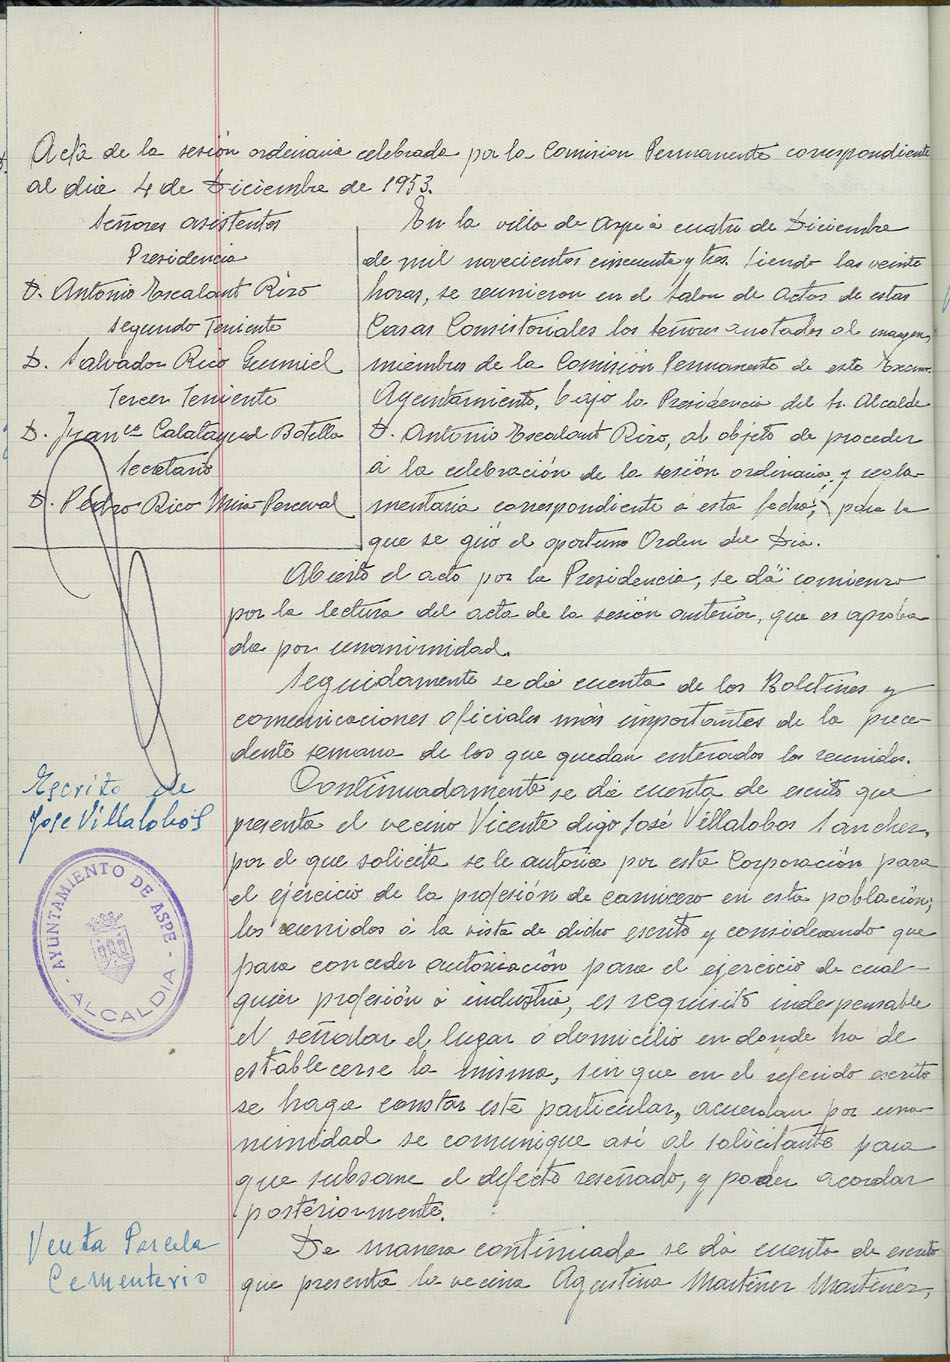 Acta de la sesión ordinaria celebrada por la Comision Permanente correspondiente
al dia 4 de Diciembre de 1953.
Señores asistentes
Presidencia
D. Antonio Escalant Rizo
Segundo Teniente
D. Salvador Rico Gumiel
Tercer Teniente
D. Franᶜᵒ Calatayud Botella
Secretario
D. Pedro Rico Mira-Perceval
En la villa de Aspe a cuatro de Diciembre
de mil novecientos cincuenta y tres. Siendo las veinte
horas, se reunieron en el Salon de Actos de estas
Casas Consistoriales los Señores anotados al margen,
miembros de la Comisión Permanente de este Excmo.
Ayuntamiento, bajo la Presidencia del Sr. Alcalde
D. Antonio Escalant Rizo, al objeto de proceder
á la celebración de la sesión ordinaria, y regla-
mentaria correspondiente á esta fecha, para la
que se giró el oportuno Orden del Dia.
Abierto el acto por la Presidencia, se dá comienzo
por la lectura del acta de la sesión anterior, que es aproba-
da por unanimidad.
Seguidamente se dá cuenta de los Boletines y
comunicaciones oficiales más importantes de la prece-
dente semana de los que quedan enterados los reunidos.
Escrito de
Jose Villalobos
Continuadamente se dá cuenta de escrito que
presenta el vecino Vicente digo José Villalobos Sánchez,
por el que solicita se le autorice por esta Corporación para
el ejercicio de la profesión de carnicero en esta población;
los reunidos á la vista de dicho escrito y considerando que
para conceder autorización para el ejercicio de cual-
quier profesión ó industria, es requisito indespensable
el señalar el lugar ó domicilio en donde ha de
establecerse la misma, sin que en el referido escrito
se haga constar este particular, acuerdan por una-
nimidad se comunique así al solicitante para
que subsane el defecto reseñado, y poder acordar
posteriormente.
AYUNTAMIENTO DE ASPE
- ALCALDIA -
Venta Parcela
Cementerio
De manera continuada se dá cuenta de escrito
que presenta la vecina Agustina Martinez Martinez,